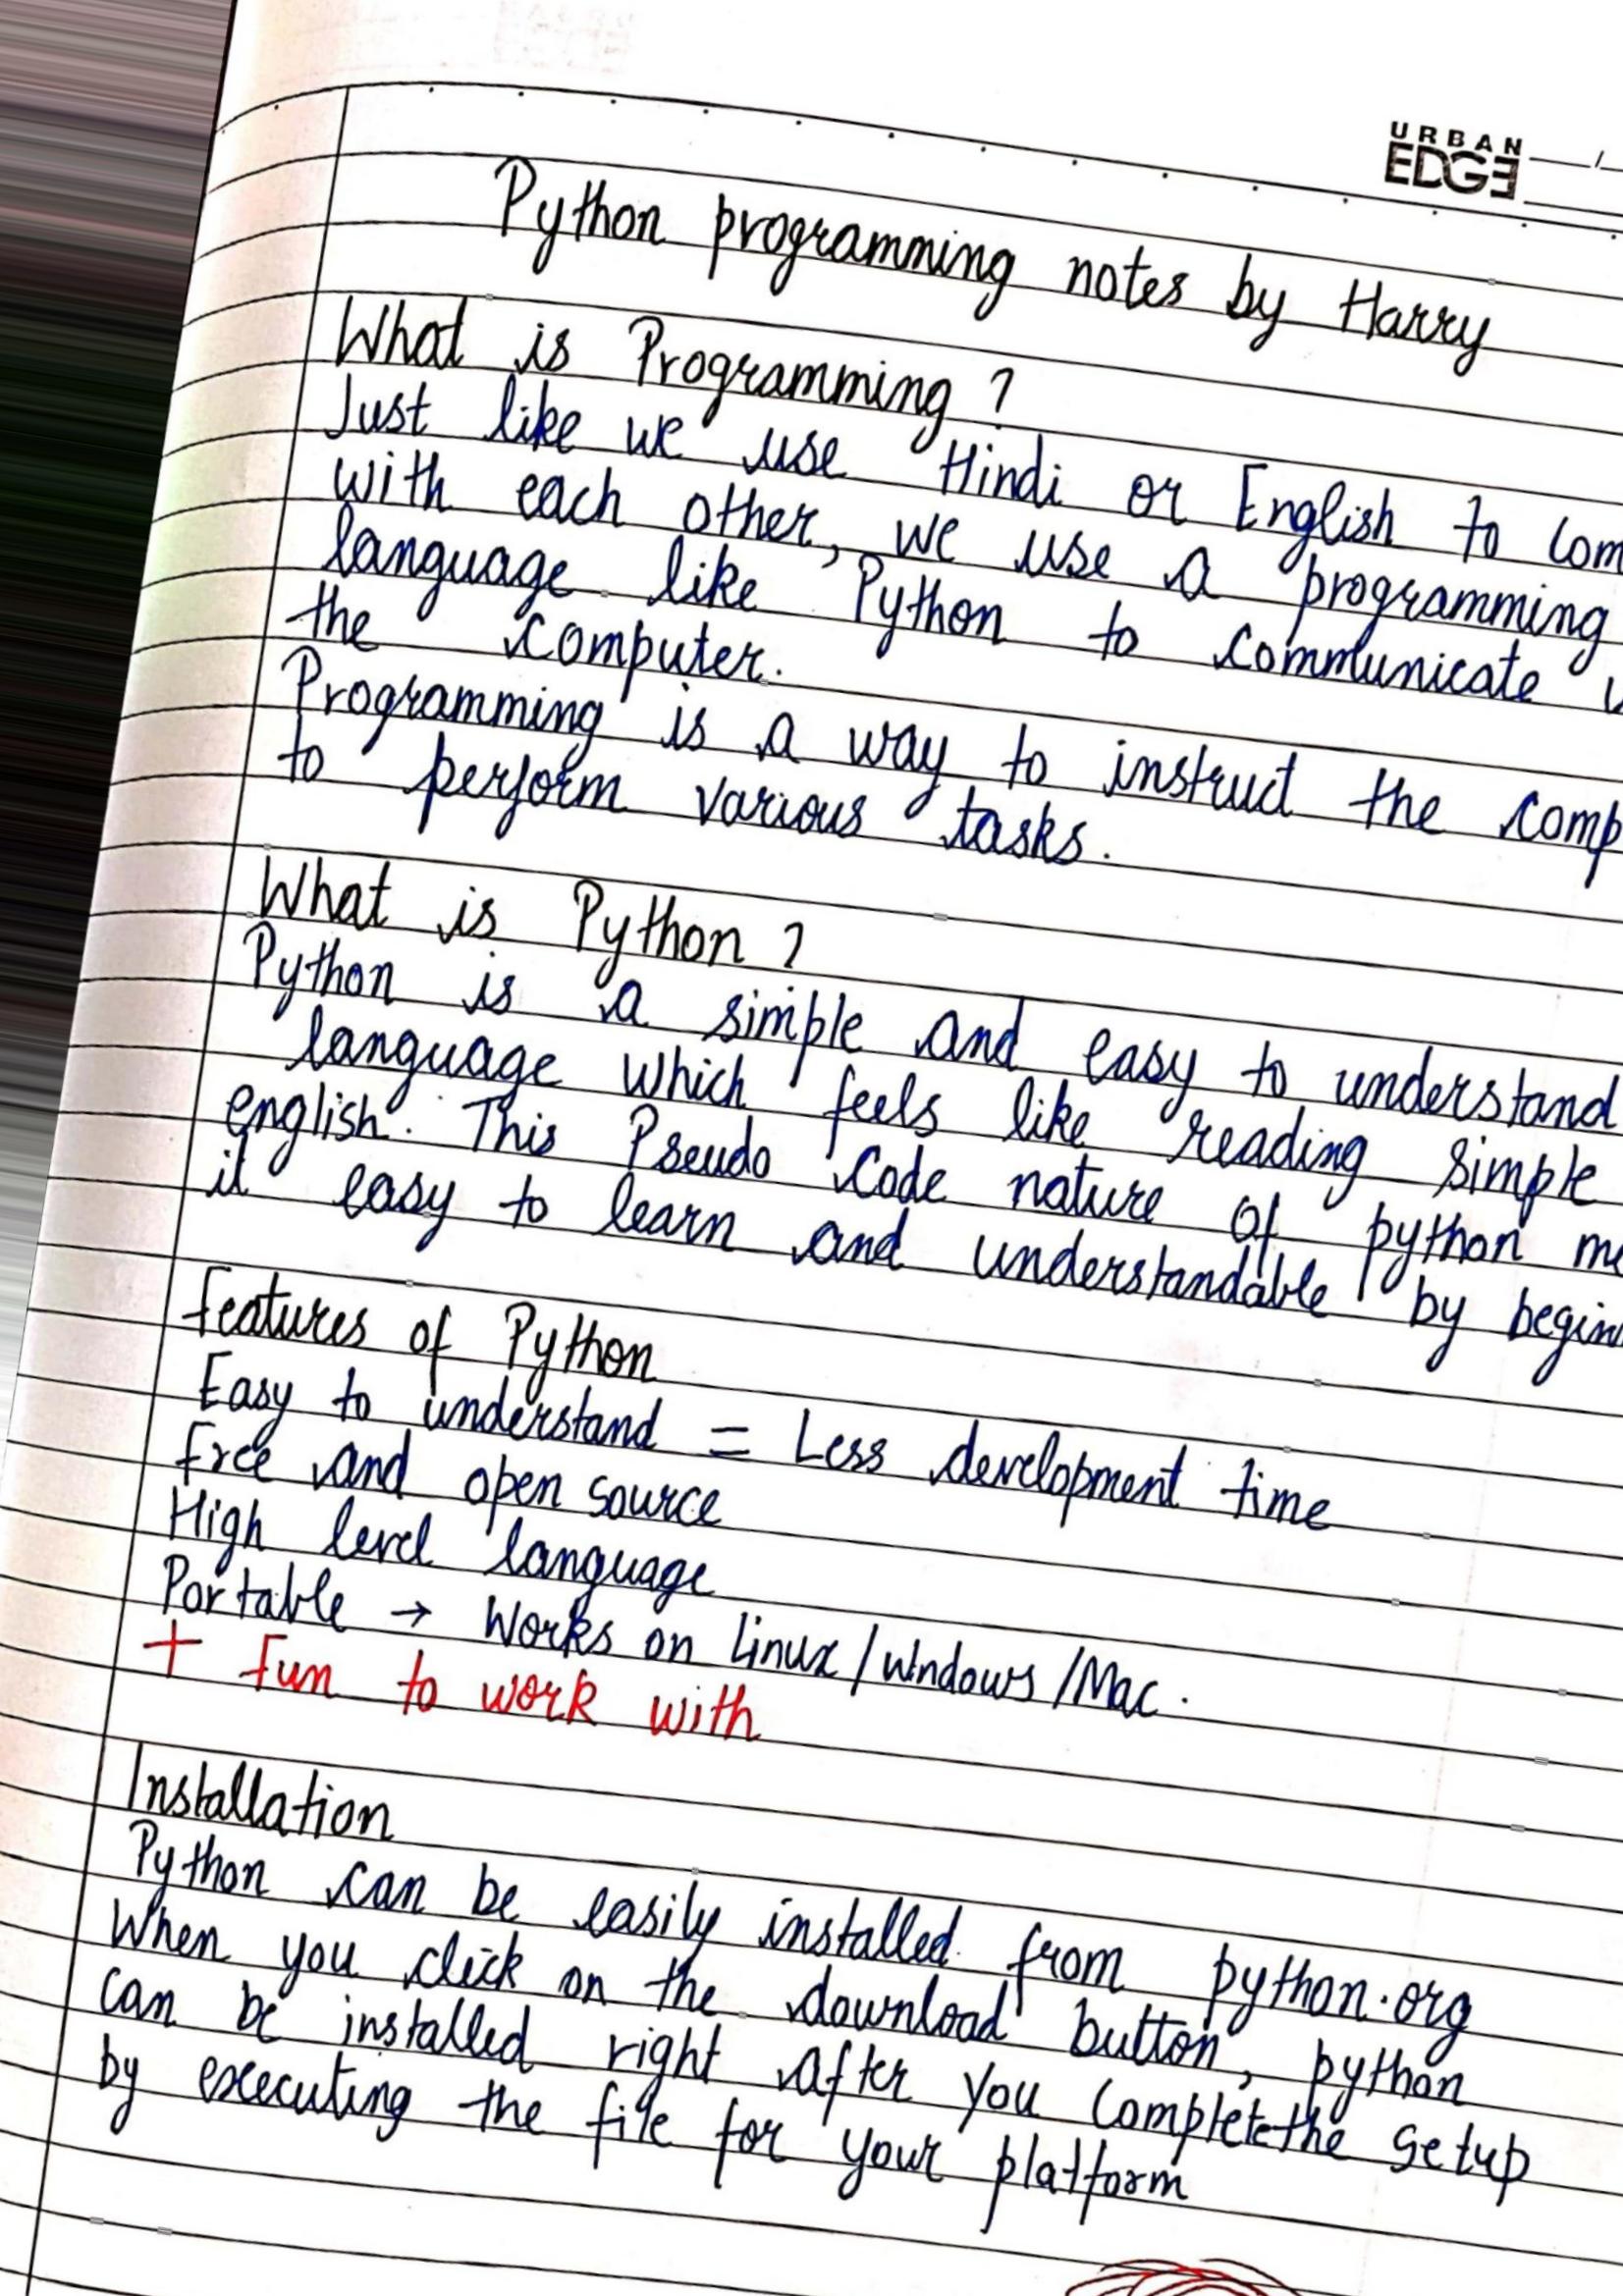 URBAN
EDGE
Python programming notes by Harry
What is Programming ?
Just like we use Hindi or English to com
with each other, we use a programming
language like Python to communicate
the computer.
Programming is a way to instruct the comp
to perform various tasks.
What is Python ?
Python is a simple and easy to understand
language which feels like reading simple
english. This Pseudo Code nature of python ma
it easy to learn and understandable by begin
Features of Python
Easy to understand = Less development time
Free and open source
High level language
Portable → Works on Linux / Wndows / Mac.
+ Fun to work with
Installation
Python can be easily installed from python.org
When you click on the download button, python
can be installed right after you complete the setup
by executing the file for your platform